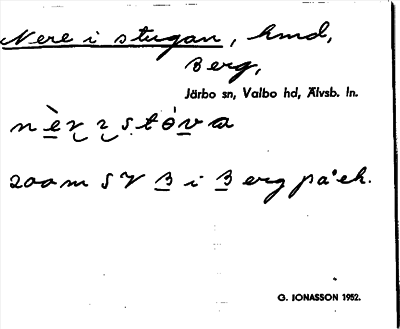 Nere i stugan, hmd,
Berg,
Järbo sn, Valbo hd, Älvsb. ln.
nèr i stóva
200 m SV B i Berg på ek.
G. JONASSON 1952.